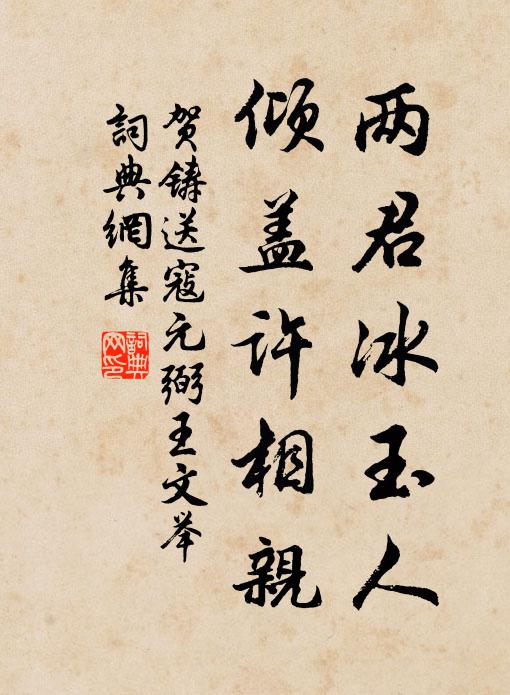 两君冰玉人
倾盖许相親
贺鑄送寇元弼王文举
詞典網集
詞典網印